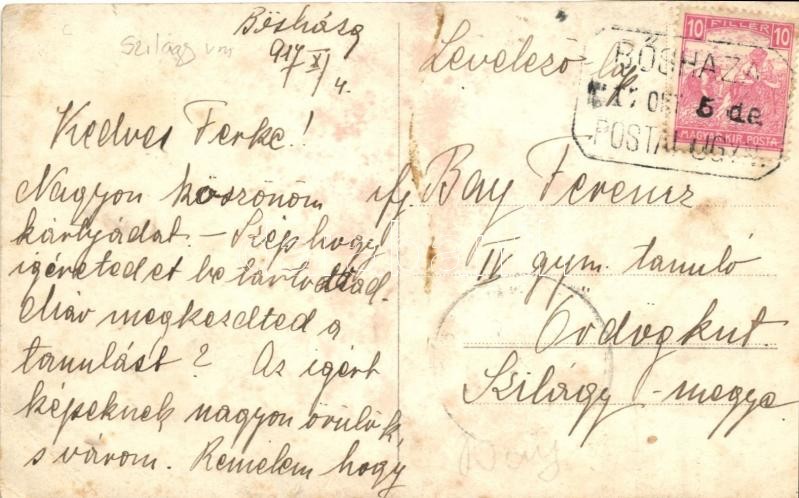 Bősháza
917 X/4.
Szilágy vm
Kedves Ferke!
Nagyon köszönöm
kártyádat. – Szép hogy
igéretedet betartottad.
Már megkezdted a
tanulást? Az igért
képeknek nagyon örülök
s várom. Remélem hogy
Levelező-lap
10 FILLÉR 10
MAGYAR KIR. POSTA
BŐSHÁZA
OKT 5 de.
POSTAI ÜGY
ifj Bay Ferencz
IV gym. tanuló
Ördögkut.
Szilágy-megye